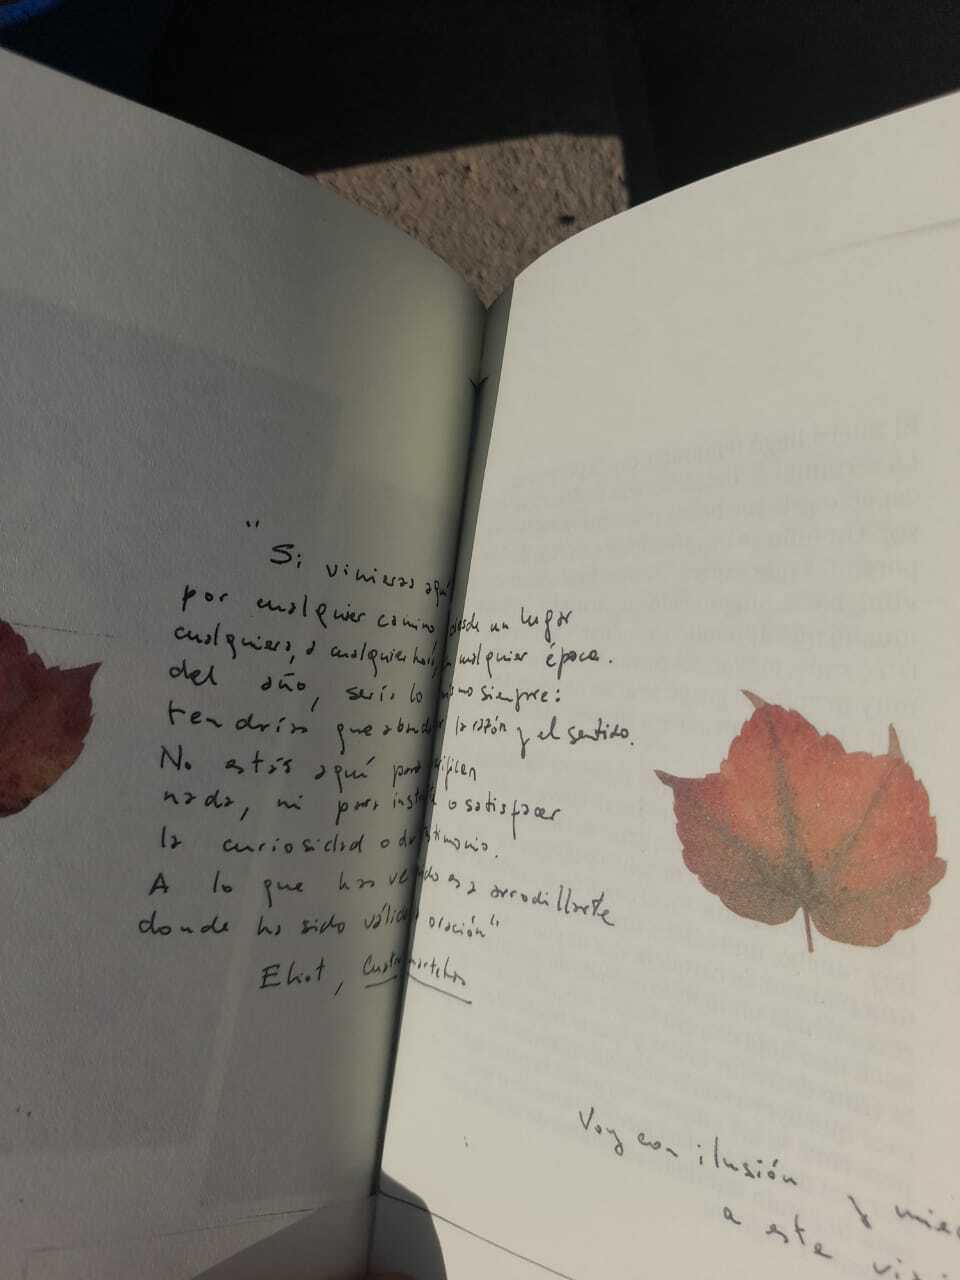 "
Si vinieras aquí
por cualquier camino, desde un lugar
cualquiera, a cualquier hora, cualquier época
del año, sería lo mismo siempre:
tendrías que abandonar la razón y el sentido.
No estás aquí para
nada, ni para o satisfacer
la curiosidad o testimonio.
A lo que has venido es a arrodillarte
donde ha sido válida oración"
Eliot, Cuatro
Voy con ilusión y
a este